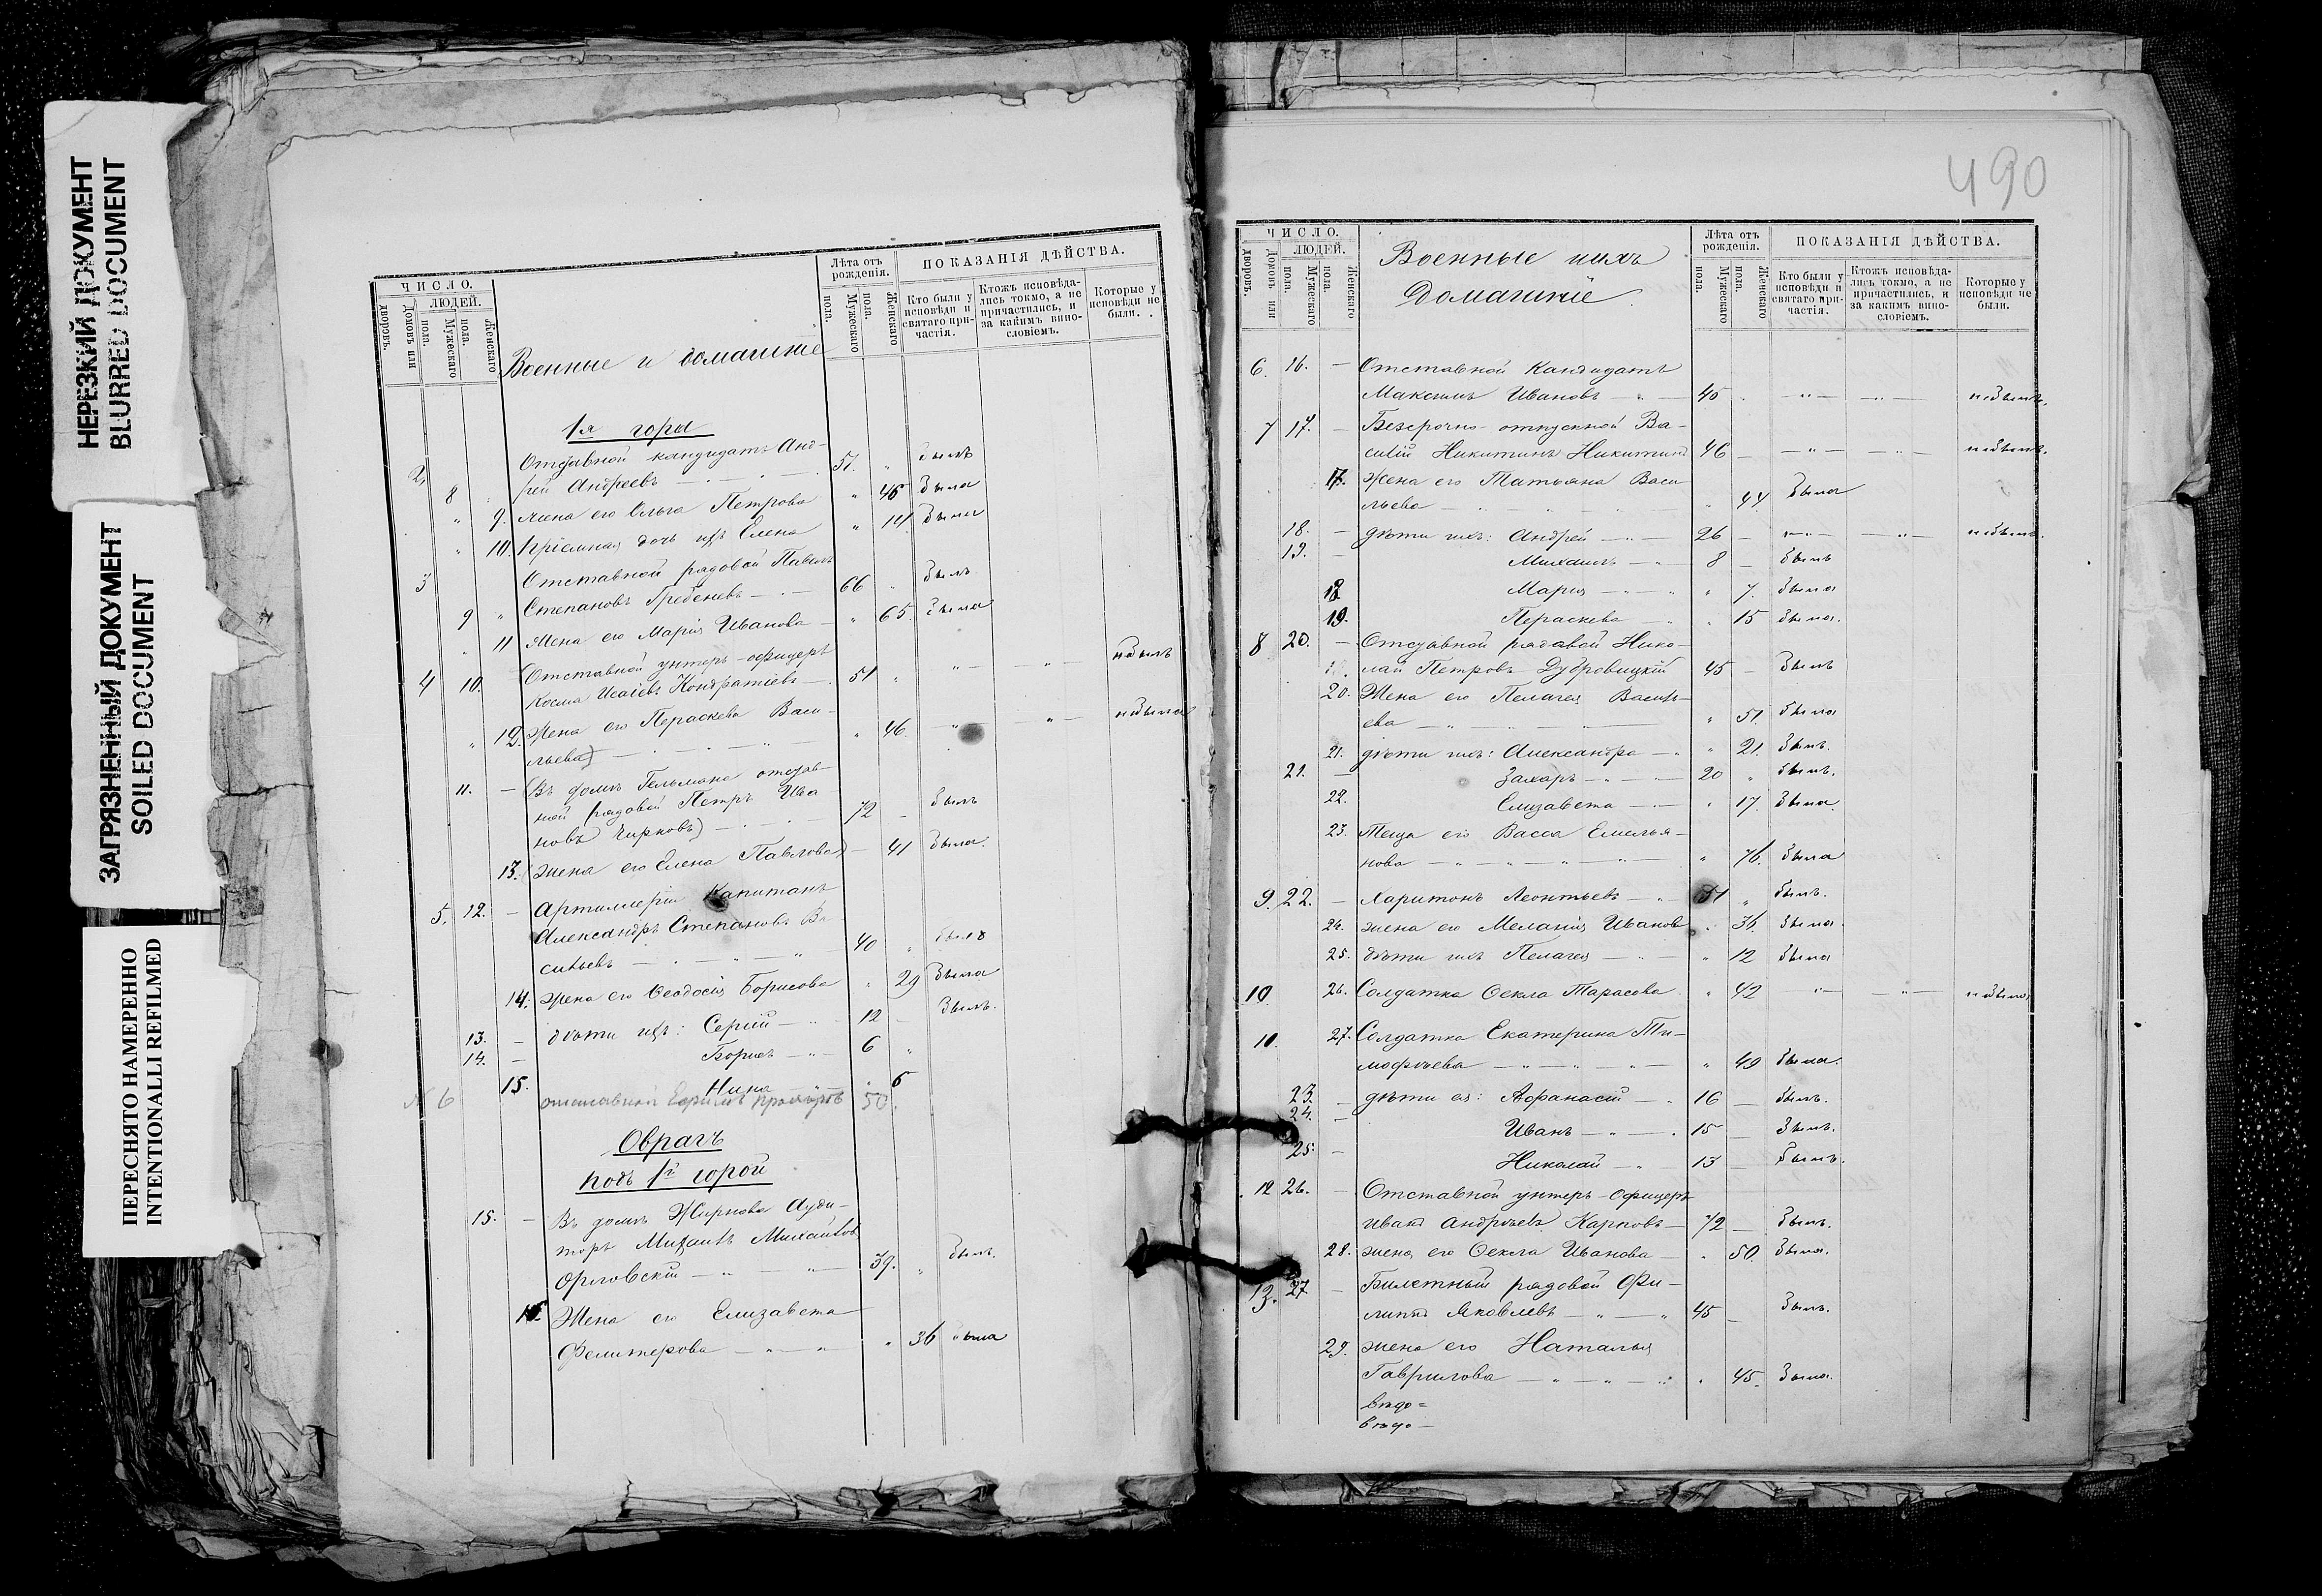 НЕРЕЗКИЙ ДОКУМЕНТ
BLURRED DOCUMENT
ЗАГРЯЗНЕННЫЙ ДОКУМЕНТ
SOILED DOCUMENT
ПЕРЕСНЯТО НАМЕРЕННО
INTENTIONALLI REFILMED
ЧИСЛО.
ЛЮДЕЙ.
Домовъ или дворовъ.
Мужескаго пола.
Женскаго пола.
Военные и домашніе
Лѣта отъ рожденія.
Мужескаго пола.
Женскаго пола.
ПОКАЗАНІЯ ДѢЙСТВА.
Кто были у исповѣди и святаго причастія.
Ктожъ исповѣдались токмо, а не причастились, и за какимъ винословіемъ.
Которые у исповѣди не были.
1я гора
Отставной кандидатъ Анд-
2. 8 рей Андреевъ 51. " былъ
" 9. жена его Ольга Петрова " 46 была
" 10. пріемная дочь ихъ Елена " 14 была
3 Отставной рядовой Павелъ
9 " Степановъ Гребеневъ 66 " былъ
" 11 Жена его Марія Иванова " 65. была
4 10. Отставной унтеръ-офицеръ
Косма Исаіевъ Кондратіевъ 51 " небылъ
" 12. Жена его Параскева Васи-
льева) " 46 небыла
11. — (Въ домѣ Гельмана отстав-
ной рядовой Петръ Ива
новъ Чирковъ) 72 — былъ
13. (жена его Елена Павлова) — 41 была.
5. 12. — Артиллеріи Капитанъ
Александръ Степановъ Ва
сильевъ 40 " былъ
14. жена его Ѳеодосія Борисова " 29 была
13. — дѣти ихъ: Сергій 12 — былъ.
14. — Борисъ 6 "
15. Нина " 6
№ 6 отставной Ефимъ Прохоровъ 50
Оврагъ
подъ 1й горой
15. — Въ домѣ Жирнова Ауди-
торъ Михаилъ Михайловъ
Орловскій 39. " былъ.
16. Жена его Елизавета
Фелитерова " 36 была
490
ЧИСЛО.
ЛЮДЕЙ.
Домовъ или дворовъ.
Мужескаго пола.
Женскаго пола.
Военные ихъ
Домашніе
Лѣта отъ рожденія.
Мужескаго пола.
Женскаго пола.
ПОКАЗАНІЯ ДѢЙСТВА.
Кто были у исповѣди и святаго причастія.
Ктожъ исповѣдались токмо, а не причастились, и за какимъ винословіемъ.
Которые у исповѣди не были.
6. 16. — Отставной Кандидатъ
Максимъ Ивановъ 45 небылъ.
7 17. — Безсрочно-отпускной Ва-
силій Никитинъ Никитинъ 46 — небылъ.
17. Жена его Татьяна Васи
льева " 44 была
18. — дѣти ихъ: Андрей 26 — небылъ.
19. — Михаилъ 8 — былъ
18 Марія " 7. была
19. Пераскева " 15 была.
8 20. — Отставной рядовой Нико-
лай Петровъ Дубровицкій 45 — былъ
20. Жена его Пелагея Василь-
ева " 51 была
21. дѣти ихъ: Александра " 21. былъ.
21. — Захаръ 20 " былъ.
22. Елизавета " 17. была.
23. Теща его Васса Емелья-
нова " 76. была
9. 22. — Харитонъ Леонтьевъ 51 " былъ.
24. жена его Меланія Иванова " 36. была.
25. дѣти ихъ Пелагея " 12 была
10 26. Солдатка Ѳекла Тарасова " 42 небыла
10. 27. Солдатка Екатерина Ти-
мофѣева " 49 была.
23. — дѣти ея: Аѳанасій 16 — былъ.
24. — Иванъ 15 — былъ.
25. — Николай 13 — былъ.
12 26. — Отставной унтеръ-офицеръ
Иванъ Андрѣевъ Карповъ 72 — былъ.
28. жена его Ѳекла Иванова " 50. была.
13. 27 — Билетный рядовой Фи-
липпъ Яковлевъ 45 — былъ.
29. жена его Наталья
Гаврилова " 45. была.